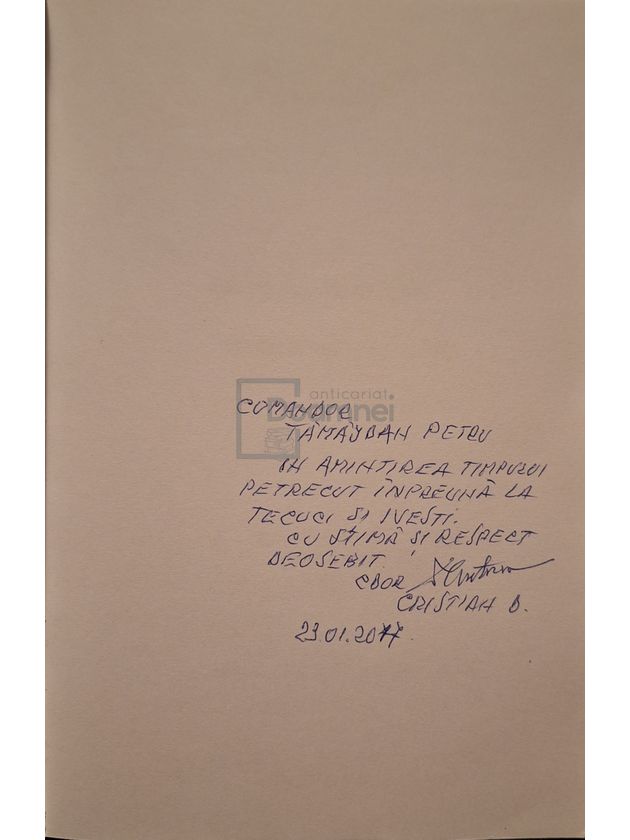 anticariat
Doamnei
COMANDOR
TĂMĂȘBAN PETRU
ÎN AMINTIREA TIMPULUI
PETRECUT ÎNPREUNĂ LA
TECUCI SI IVESTI.
CU STIMĂ ȘI RESPECT
DEOSEBIT.
CDOR
CRISTIAN D.
23.01.2017.